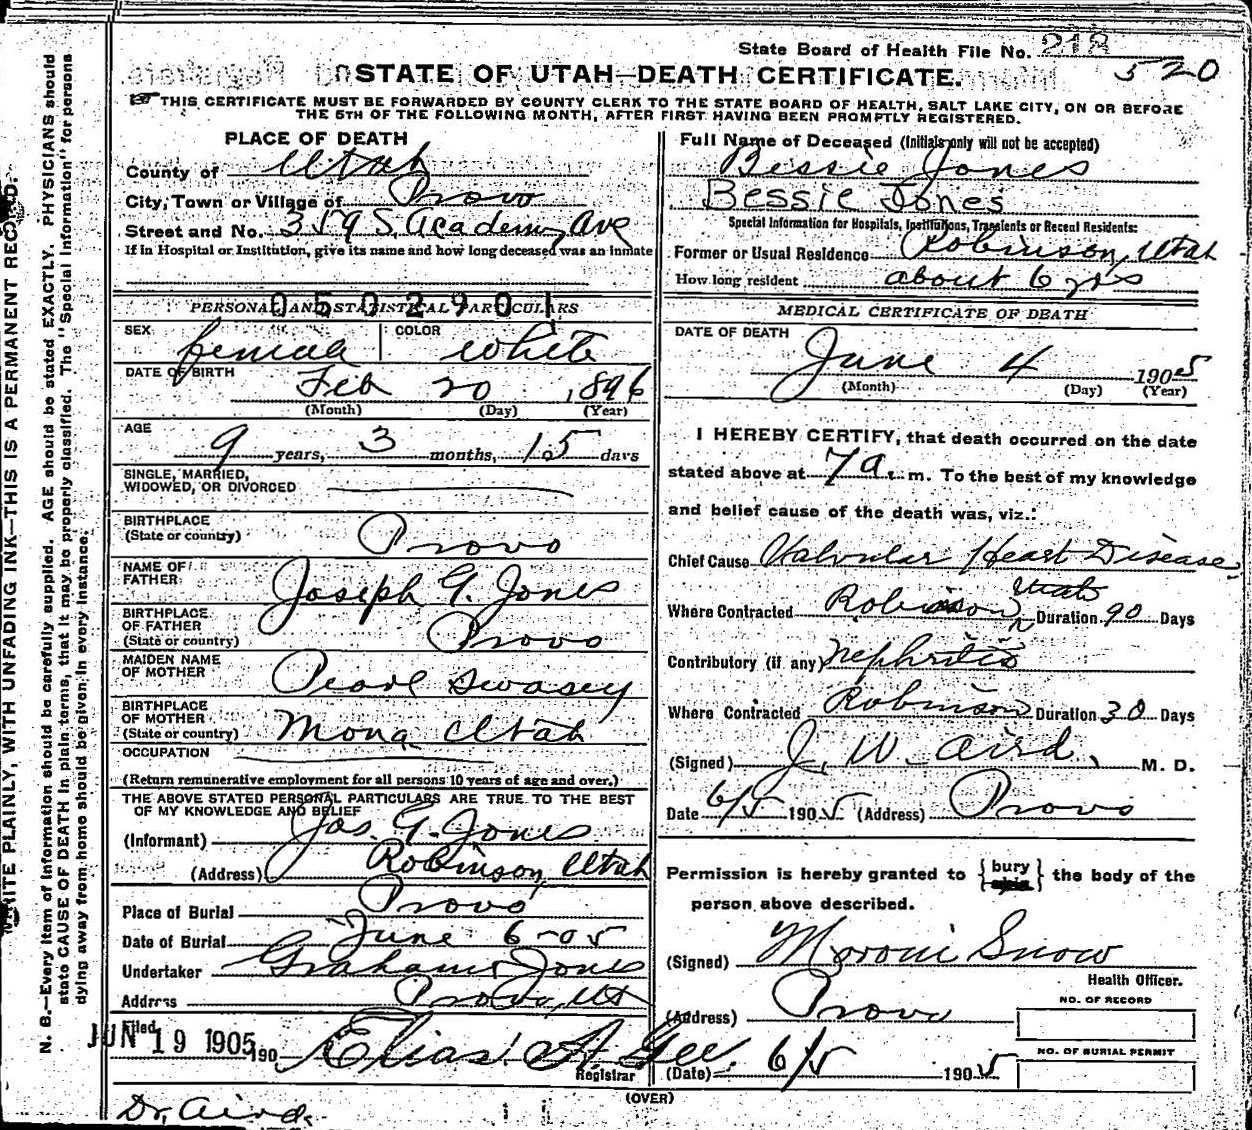 State Board of Health File No. 218
520
STATE OF UTAH—DEATH CERTIFICATE.
THIS CERTIFICATE MUST BE FORWARDED BY COUNTY CLERK TO THE STATE BOARD OF HEALTH, SALT LAKE CITY, ON OR BEFORE
THE 5TH OF THE FOLLOWING MONTH, AFTER FIRST HAVING BEEN PROMPTLY REGISTERED.
PLACE OF DEATH
County of Utah
City, Town or Village of Provo
Street and No. 359 S. Academy Ave
If in Hospital or Institution, give its name and how long deceased was an inmate
050290
PERSONAL AND STATISTICAL PARTICULARS
SEX female COLOR White
DATE OF BIRTH Feb 20, 1896
(Month) (Day) (Year)
AGE
9 years, 3 months, 15 days
SINGLE, MARRIED,
WIDOWED, OR DIVORCED
BIRTHPLACE
(State or country) Provo
NAME OF
FATHER Joseph G. Jones
BIRTHPLACE
OF FATHER
(State or country) Provo
MAIDEN NAME
OF MOTHER Pearl Swasey
BIRTHPLACE
OF MOTHER
(State or country) Mona Utah
OCCUPATION
(Return remunerative employment for all persons 10 years of age and over.)
THE ABOVE STATED PERSONAL PARTICULARS ARE TRUE TO THE BEST
OF MY KNOWLEDGE AND BELIEF
(Informant) Jos. G. Jones
(Address) Robinson, Utah
Place of Burial Provo
Date of Burial June 6-05
Undertaker Graham Jones
Address Provo, Ut
Filed
JUN 19 1905 190 Elias A. Gee.
Registrar
Full Name of Deceased (Initials only will not be accepted)
Bessie Jones
Bessie Jones
Special Information for Hospitals, Institutions, Transients or Recent Residents:
Former or Usual Residence Robinson, Utah
How long resident about 6 yrs
MEDICAL CERTIFICATE OF DEATH
DATE OF DEATH
June 4 1905
(Month) (Day) (Year)
I HEREBY CERTIFY, that death occurred on the date
stated above at 7 a. m. To the best of my knowledge
and belief cause of the death was, viz.:
Chief Cause Valvular Heart Disease
Where Contracted Robinson Utah Duration 90 Days
Contributory (if any) Nephritis
Where Contracted Robinson Duration 30 Days
(Signed) J. W. Aird, M. D.
Date 6/5 1905 (Address) Provo
Permission is hereby granted to { bury } the body of the
person above described.
(Signed) Moroni Snow
Health Officer.
(Address) Provo
NO. OF RECORD
NO. OF BURIAL PERMIT
(Date) 6/5 1905
(OVER)
Dr. Aird.
WRITE PLAINLY, WITH UNFADING INK—THIS IS A PERMANENT RECORD.
N. B.—Every item of information should be carefully supplied. AGE should be stated EXACTLY. PHYSICIANS should
state CAUSE OF DEATH in plain terms, that it may be properly classified. The "Special Information" for persons
dying away from home should be given in every instance.